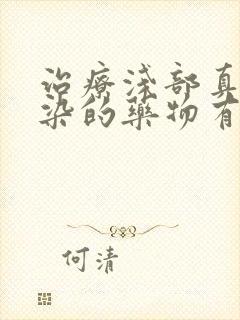 治療淺部真
染的藥物有
何清